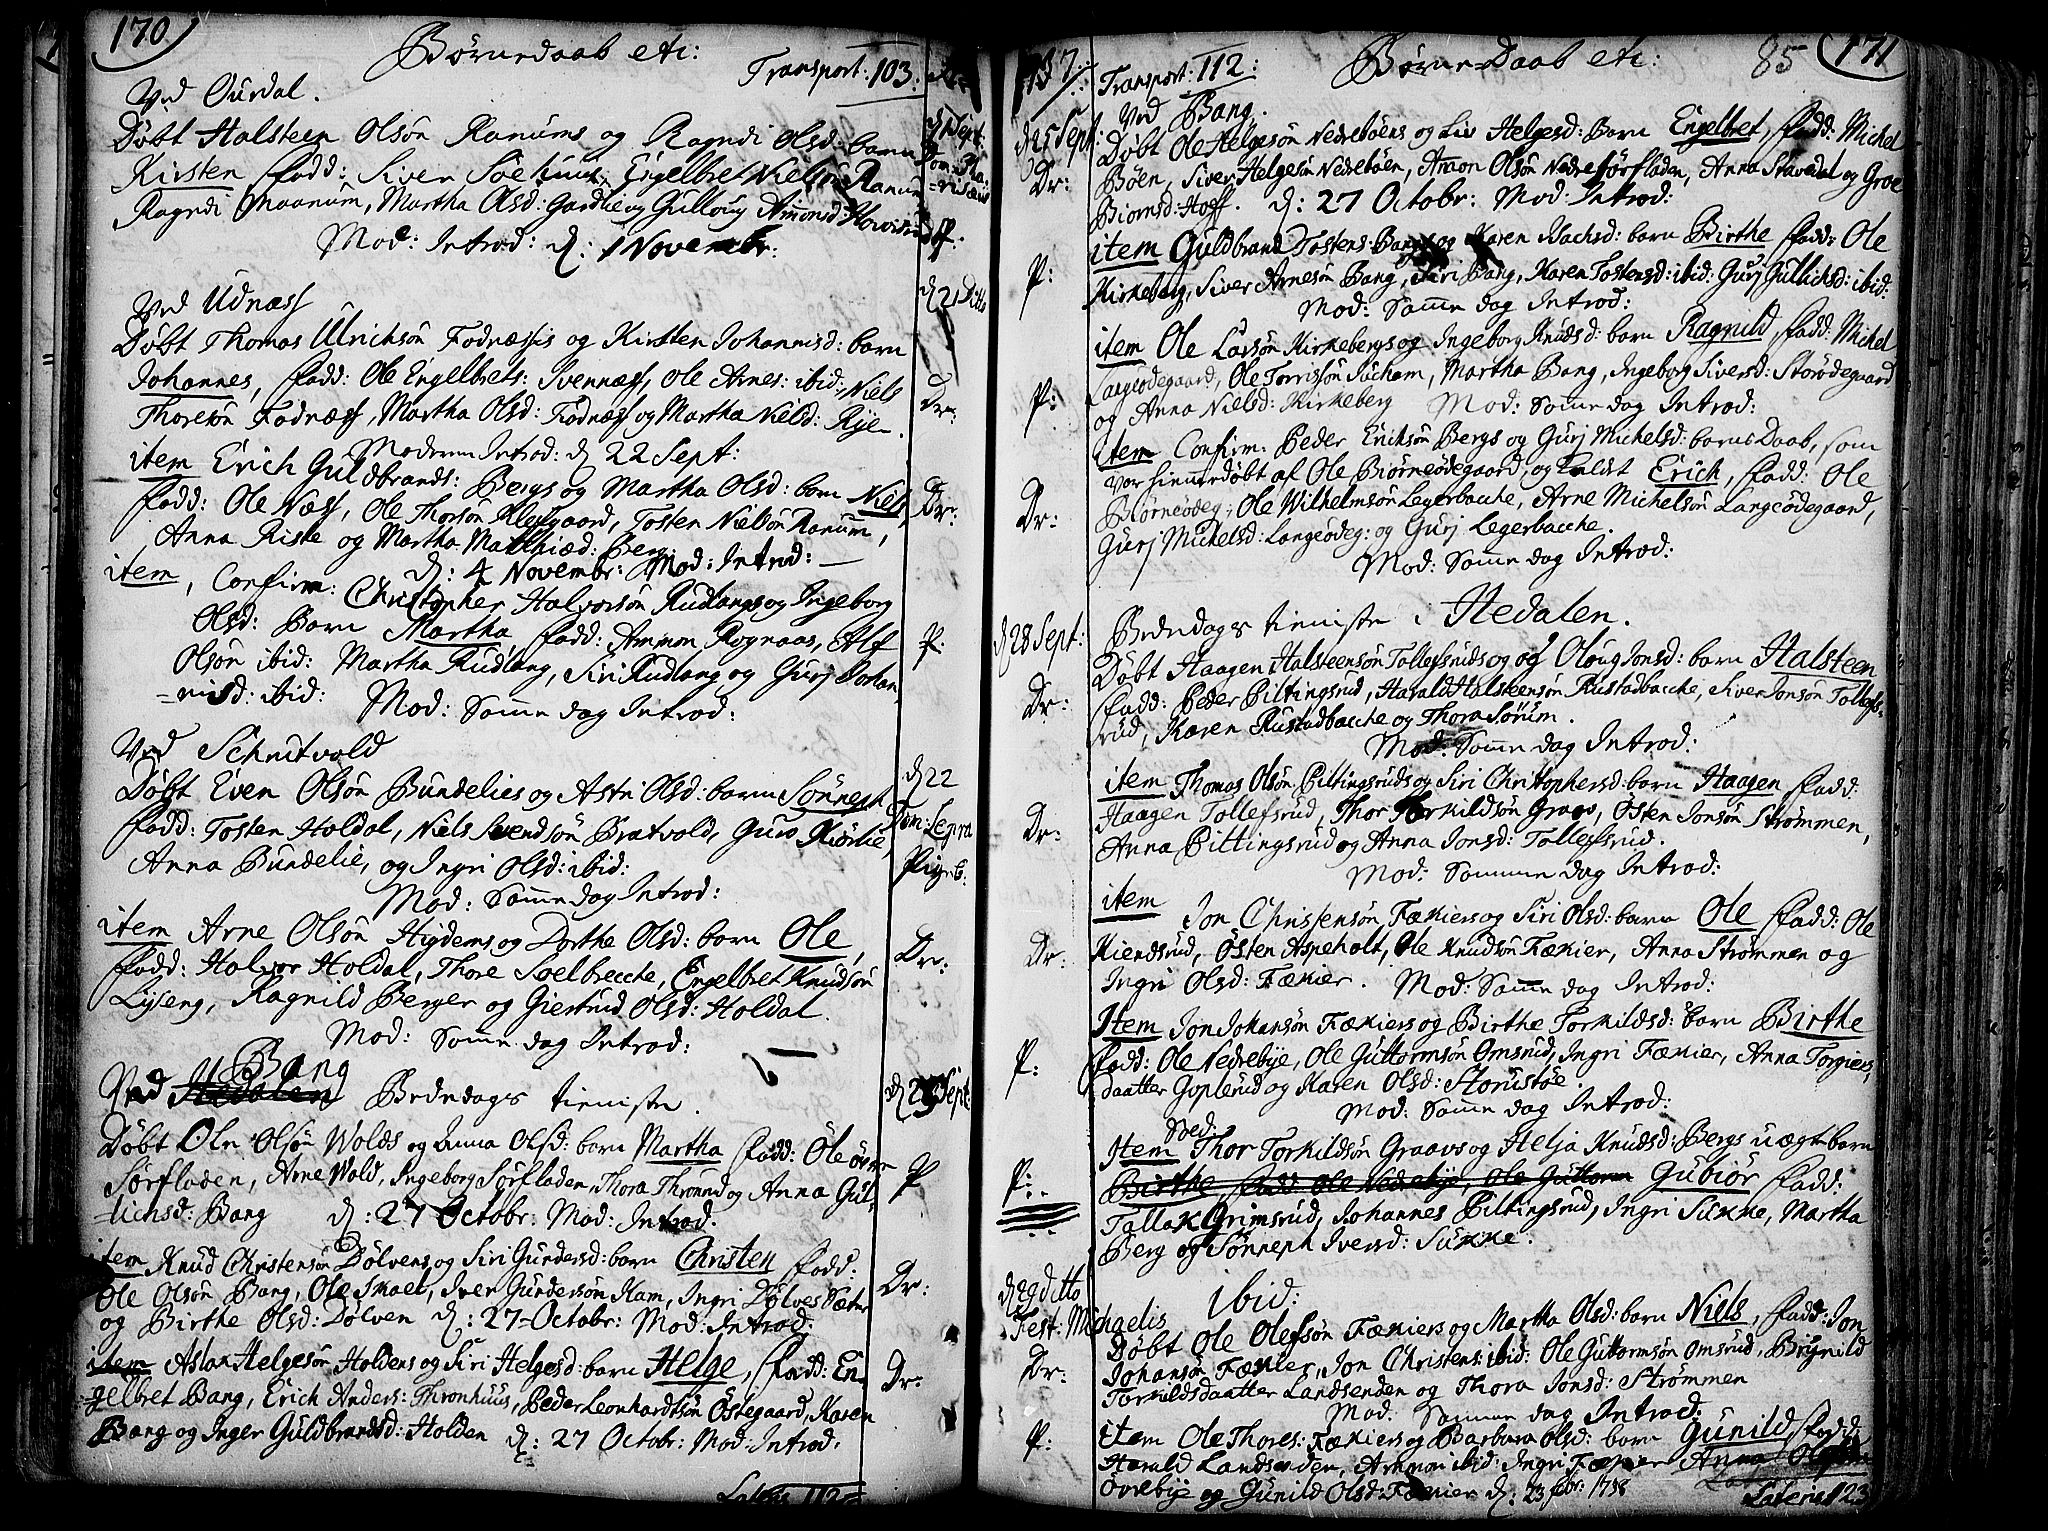 170
Børnedaab etc:
Transport: 103.
Ved Ourdal.
Døbt Halsteen Olsøn Ranums og Ragndi Olsd: barn
Kirsten fadd: Siver Søe Engelbret Nielsøn Ranum
Ragndi Maanum, Martha Olsd: Garthe og Gulloug Amonsd:
Mod: Introd: d: 1 Novembr:
Dr:
d 21 Ditto
Ved Udnæss
Døbt Thomas Ulrichsøn Fodnæssis og Kirsten Johannisd: barn
Johannes, fadd: Ole Engelbrets: Svennæss, Ole Arnes: ibid:, Niels
Thoresøn Fodnæss, Martha Olsd: Fodnæss og Martha Nielsd: Rye.
Dr:
Moderen Introd: d 22 Sept:
item Erich Guldbrands: Bergs og Martha Olsd: barn Niels,
fadd: Ole Næss, Ole Thorsøn Klefgaard, Tosten Nielsøn Ranum,
Dr:
Anna Riste og Martha Matthiæd: Berg.
d: 4 Novembr: Mod: Introd:
item, Confirm: Christopher Halvorsøn Rudlangs og Ingeborg
Olsd: Barn Martha fadd: Ammon Rognaas, Alf
P:
Olsøn ibid: Martha Rudlang, Siri Rudlang og Gurj Johan,
=nisd: ibid: Mod: Samme dag Introd:
Ved Schrutvold
Døbt Even Olsøn Bundelies og Astri Olsd: barn Sønneph
d 22
fadd: Tosten Holdal, Niels Svendsøn Bratvold, Guro Kiørlie,
Anna Bundelie, og Ingri Olsd: ibid:
Mod: Samme dag Introd:
item Arne Olsøn Higdems og Dorthe Olsd: barn Ole,
fadd: Halvor Holdal, Thore Soelbrecche, Engelbret Knudsøn
Dr:
Lijseng, Ragnild Berger og Giertrud Olsd: Holdal.
Mod: Samme dag Introd:
Bang
Ved Hedalen Bededags tieniste.
d 25 Sept:
Døbt Ole Olsøn Wolds og Anna Olsd: barn Martha fadd: Ole øvre
Sørfladen, Arne Wold, Ingeborg Sørfladen, Thora Thrønnd og Anna Gul,
P
=lichsd: Bang d: 27 Octobr: Mod: Introd.
item Knud Christensøn Dølvens og Siri Gundersd: barn Christen fadd:
Ole Olsøn Bang, Ole Skael, Iver Gundersøn Kam, Ingri Dølves Sæter
Dr:
og Birthe Olsd: Dølven d: 27 Octobr: Mod: Introd:
item Aslak Helgesøn Holdens og Siri Helgesd: barn Helge, fadd: En,
=gelbret Bang, Erich Anders: Thronhuus, Peder Leonhardtsøn Østegaard, Karen
Dr:
Bang og Inger Guldbrandsd: Holden d: 27 Octobr: Mod: Introd:
Lateris 112
1737
171
85
Børne-Daab etc:
Transport: 112:
Ved Bang.
d 25 Sept:
Døbt Ole Helgesøn Nedrebøens og Liv Helgesd: Barn Engelbret, fadd: Michel
Dr:
Bøen, Siver Helgesøn Nedrebøen, Amon Olsøn Nedre Sørfladen, Anna Stavedal og Groe
Biørnsd: Hoff. d: 27 Octobr: Mod: Introd:
item Guldbrand Tostens: Bangs og Karen Isachsd: barn Birthe fadd: Ole
P:
Kirkeberg, Siver Arnesøn Bang, Siri Bang, Karen Tostensd: ibid: Gurj Gullichsd: ibid:
Mod: Samme dag Introd:
item Ole Larsøn Kirkebergs og Ingeborg Knudsd: barn Ragnild fadd: Michel
Langeødegaard, Ole Torrissøn Juchem, Martha Bang, Ingeborg Siversd: Storødegaard
P:
og Anna Nielsd: Kirkeberg Mod: Samme dag Introd:
item Confirm: Peder Erichsøn Bergs og Gurj Michelsd: barns Daab, som
var hiemmedøbt af Ole Biørneødegaard, og kaldt Erich, fadd: Ole
Biørneødeg:, Ole Wilhelmsøn Legerbacche, Arne Michelsøn Langeødegaard,
Dr:
Gurj Michelsd: Langeødeg: og Gurj Legerbacche.
Mod: Samme dag Introd:
d 28 Sept:
Bededags tieniste i Hedalen.
Døbt Haagen Halsteensøn Tollefsruds og Oloug Jonsd: barn Halsteen
Dr:
fadd: Peder Piltingsrud, Harald Halsteensøn Rustadbacche, Siver Jonsøn Tollefs,
rud, Karen Rustadbacche og Thora Sørum.
Mod: Samme dag Introd:
item Thomas Olsøn Piltingsruds og Siri Christophersd: barn Haagen fadd:
Haagen Tollefsrud, Thor Torkildsøn Graav, Østen Jonsøn Strømmen,
Dr:
Anna Piltingsrud og Anna Jonsd: Tollefsrud.
Mod: Samme dag Introd:
item Jon Christensøn Fækiers og Siri Olsd: barn Ole fadd: Ole
Kiendsrud, Østen Aspeholt, Ole Knudsøn Fækier, Anna Strømmen og
Dr:
Ingri Olsd: Fækier. Mod: Samme dag Introd:
Item Jon Johansøn Fækiers og Birthe Torkildsd: barn Birthe
P:
fadd: Ole Nedrebye, Ole Guttormsøn Omsrud, Ingri Fækier, Anna Torgiers,
daatter Goplerud og Karen Olsd: Storustøe.
Mod: Samme dag Introd:
Item Sold: Thor Torkildsøn Graavs og Helja Knudsd: Bergs uægte barn
P:
Birthe fadd Ole Nedrebye, Ole Guttorm Gubiør fadd:
Tallak Grimsrud, Johannes Piltingsrud, Ingri Sukke, Martha
Berg og Sønneph Iversd: Sukke.
d 29 ditto
Fest: Michaelis
ibid:
Døbt Ole Olefsøn Fækiers og Martha Olsd: barn Niels, fadd: Jon
Dr:
Johansøn Fækier, Jon Christens: ibid: Ole Guttormsøn Omsrud, Brijnild
Torkildsdaatter Landsenden og Thora Jonsd: Strømmen
Mod. Samme dag Introd.
P:
item Ole Thores: Fækiers og Barbara Olsd: barn Gunild, fadd:
Harald Landsenden, Ammon ibid: Ingri Fækier Anna
Øvrebye og Gunild Olsd: Fækier d: 23 febr: 1738
Lateris 123